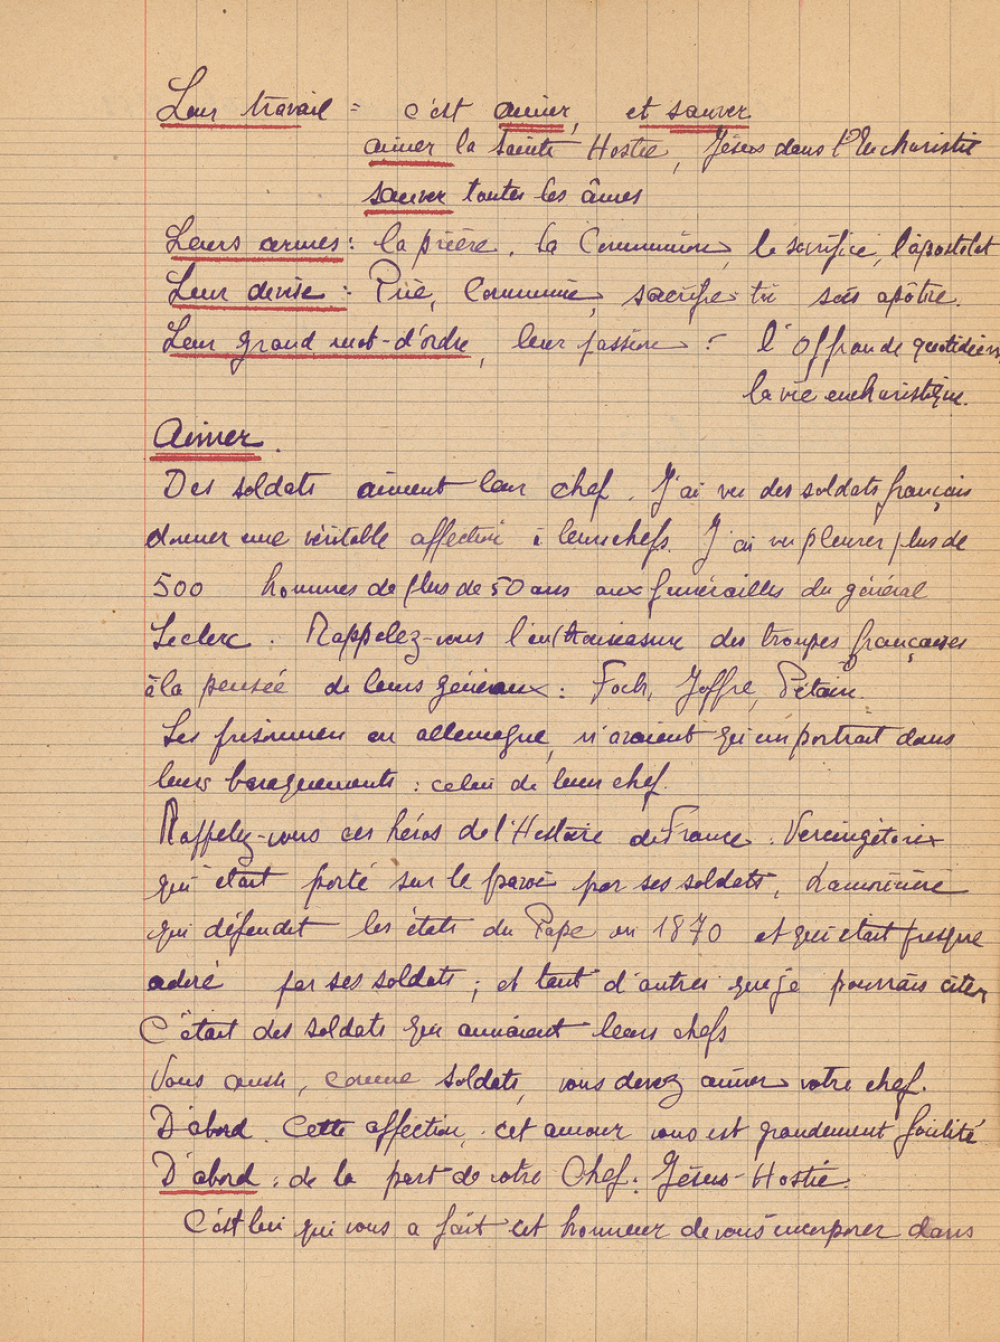 Leur travail = c'est aimer, et sauver
aimer la Sainte Hostie, Jésus dans l'Eucharistie
sauver toutes les âmes
Leurs armes : la prière, la Communion, le sacrifice, l'apostolat
Leur devise : Prie, Communie, sacrifie-toi sois apôtre.
Leur grand mot-d'ordre, leur passion : l'Offrande quotidienne
la vie eucharistique.
Aimer.
Des soldats aiment leur chef. J'ai vu des soldats français
donner une véritable affection à leurs chefs. J'ai vu pleurer plus de
500 hommes de plus de 50 ans aux funérailles du général
Leclerc. Rappelez-vous l'enthousiasme des troupes françaises
à la pensée de leurs généraux : Foch, Joffre, Pétain.
Les prisonniers en allemagne, n'avaient qu'un portrait dans
leurs baraquements : celui de leur chef.
Rappelez-vous ces héros de l'Histoire de France. Vercingétorix
qui était porté sur le pavois par ses soldats, Lamoricière
qui défendit les états du Pape en 1870 et qui était presque
adoré par ses soldats ; et tant d'autres que je pourrais citer
C'était des soldats qui aimaient leurs chefs
Vous aussi, comme soldats, vous devez aimer votre chef.
D'abord. Cette affection, cet amour vous est grandement facilité
D'abord : de la part de votre Chef : Jésus-Hostie.
C'est lui qui vous a fait cet honneur de vous incorporer dans